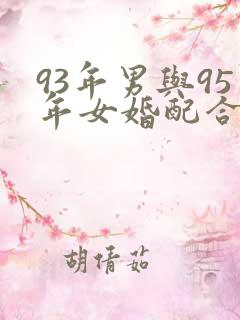 93年男與95
年女婚配合
胡倩茹